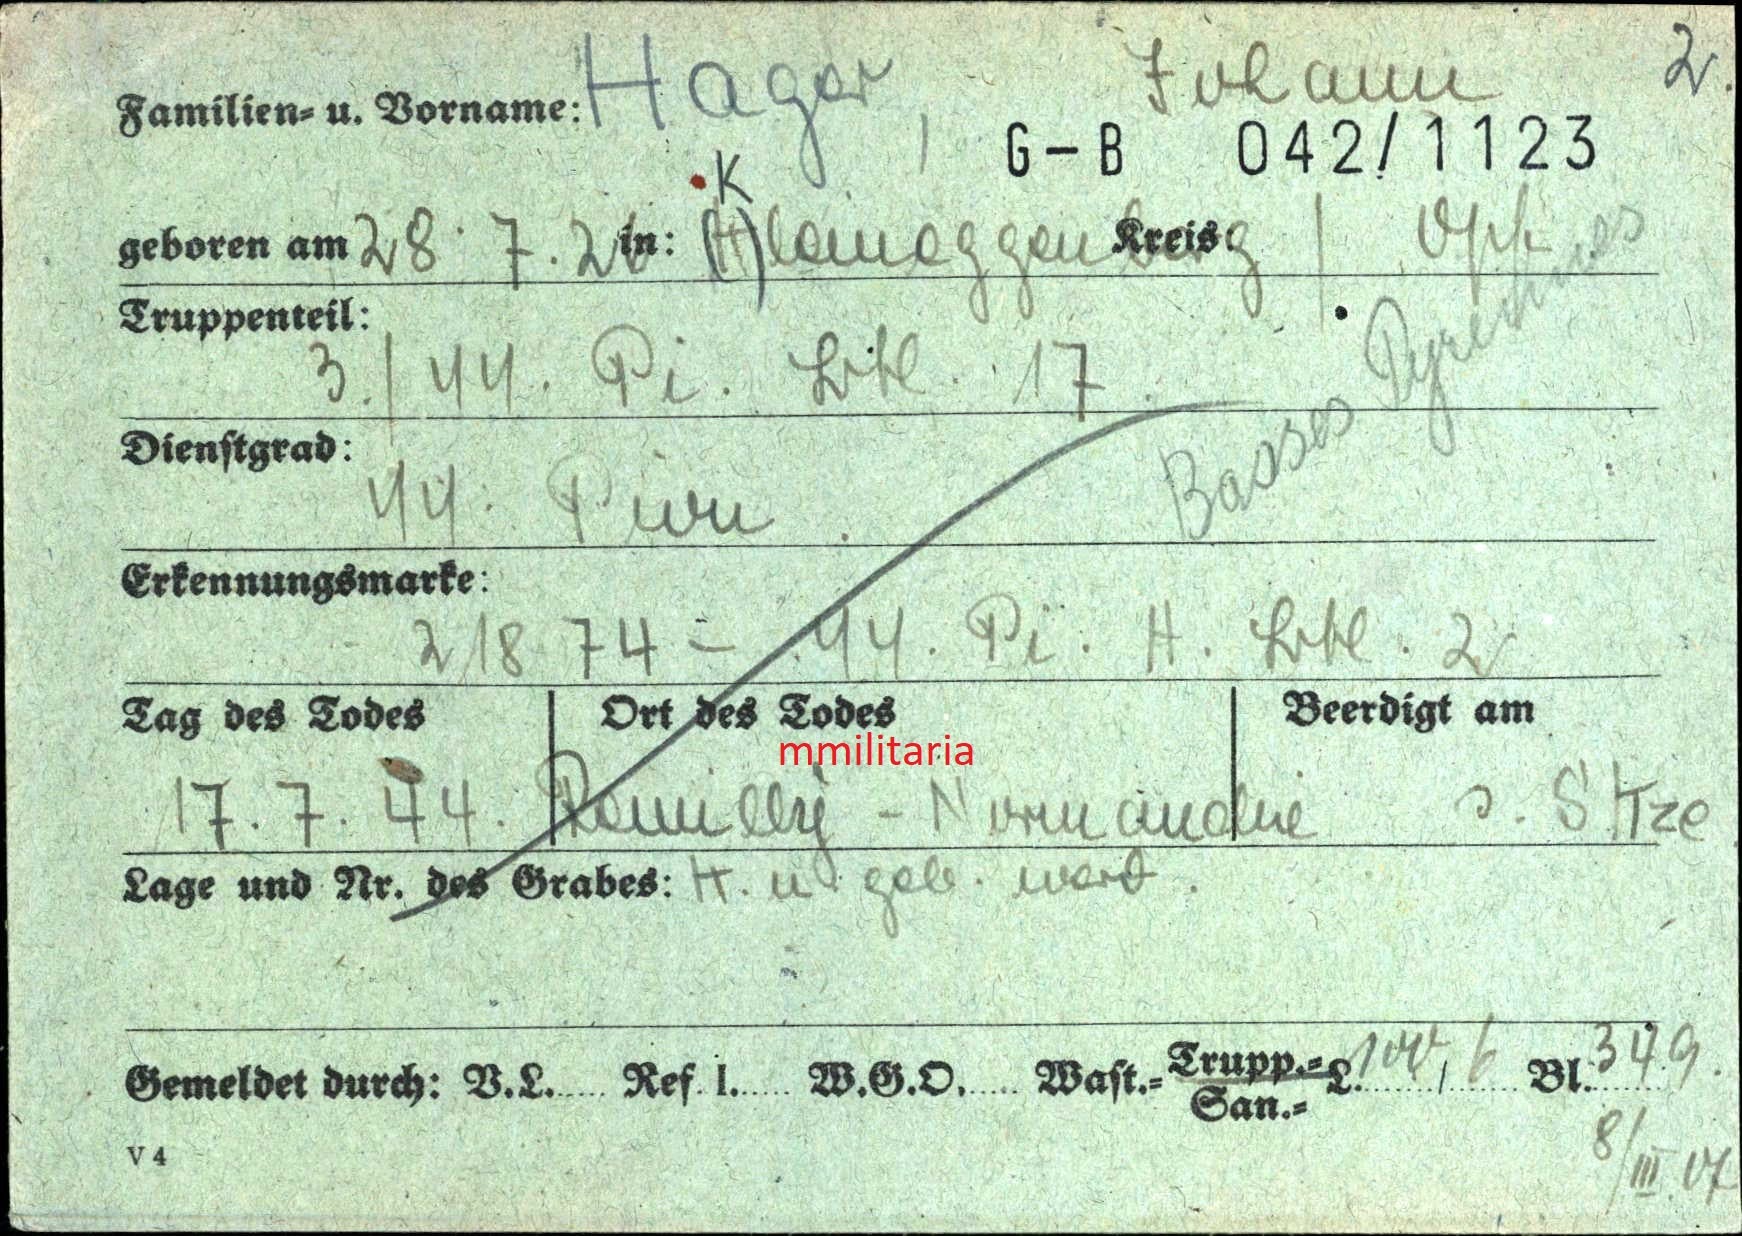 Familien- u. Vorname: Hager Johann 2.
G-B 042/1123
K
geboren am 28. 7. 26 in: (H)leineggenberg Kreis / Opf.
Truppenteil:
3./44. Pi. Btl. 17.
Basses Pyrennees
Dienstgrad:
44. Pion.
Erkennungsmarke:
21874 = 44. Pi. H. Btl. 2
Tag des Todes Ort des Todes Beerdigt am
mmilitaria
17. 7. 44. Remilly - Normandie
Lage und Nr. des Grabes: H. u. geb. word.
Gemeldet durch: V.L. Ref. I. W.G.O. Wast.= Trupp.=
San.= L. / 6 Bl. 349.
8/III
V 4